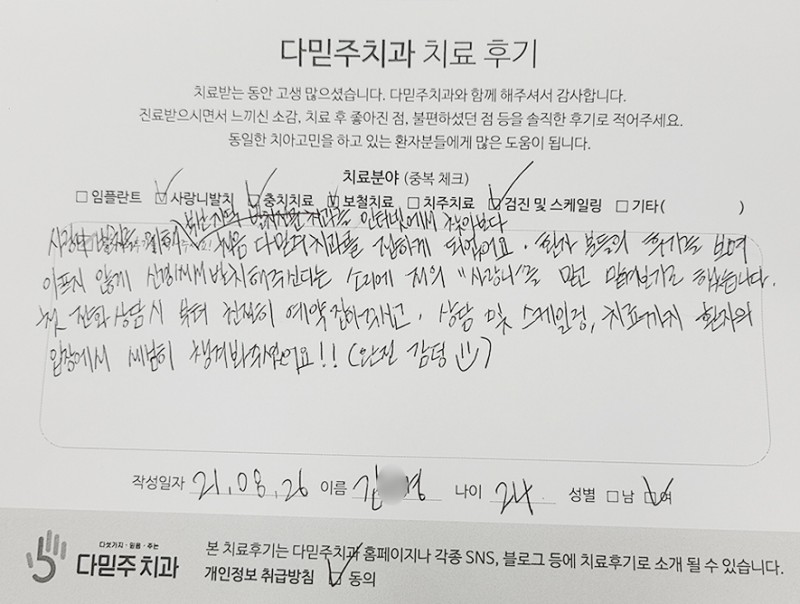 다믿주치과 치료 후기
치료받는 동안 고생 많으셨습니다. 다믿주치과와 함께 해주셔서 감사합니다.
진료받으시면서 느끼신 소감, 치료 후 좋아진 점, 불편하셨던 점 등을 솔직한 후기로 적어주세요.
동일한 치아고민을 하고 있는 환자분들에게 많은 도움이 됩니다.
치료분야 (중복 체크)
□ 임플란트 ☑ 사랑니발치 ☑ 충치치료 ☑ 보철치료 □ 치주치료 ☑ 검진 및 스케일링 □ 기타( )
발치전문 치과를 인터넷에서 찾아보다
사랑니 발치를 처음 다믿주치과를 접하게 되었어요. 환자분들의 후기를 보며
아프지 않게 신경써서 발치해주신다는 소리에 저의 "사랑니"를 믿고 맡겨보기로 했습니다.
첫 전화상담시 부터 친절히 예약 잡아주시고, 상담 및 스케일링, 치료까지 환자의
입장에서 세심히 챙겨봐주셨어요!! (완전 감동)
작성일자 21.08.26 이름 김 영 나이 24 성별 □남 ☑여
다섯가지·믿음·주는
다믿주치과
본 치료후기는 다믿주치과 홈페이지나 각종 SNS, 블로그 등에 치료후기로 소개 될 수 있습니다.
개인정보 취급방침 ☑ 동의